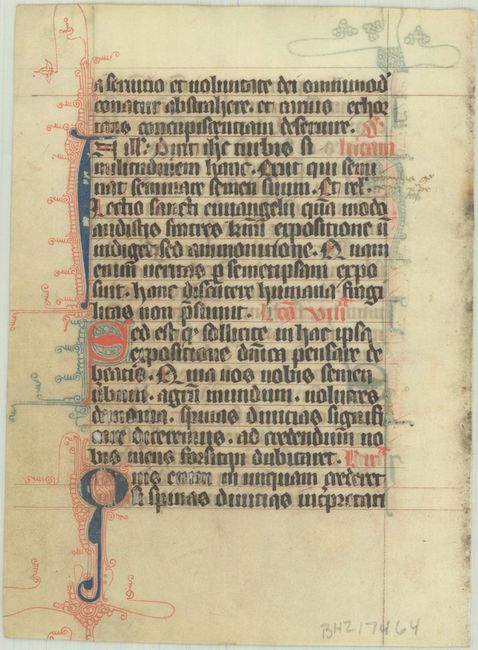 a seruitio et uoluntate dei omnimod'
conatur abstrahere. et carnis exhor
tans concupiscentiam deseruire.
In ill'. Dixit ihc turbis si lucam
militudinem hanc. Exiit qui semi
nat seminare semen suum. Et rel.
Lectio sancti euuangelii quā modo
audistis fratres kmi expositione n̄
indiget sed ammonitione. Quam
enim ueritas p semetipsam expo
suit. hanc discutere humana fragi
litas non p̄sumit. Lc̄o viiiᵃ
Sed est qd sollicite in hac ipsa
expositione dn̄ica pensare de
beatis. Quia nos uobis semen
uerbum. agrū mundum. uolucres
demonia. spinas diuitias signifi
care diceremus. ad credendum no
bis mens forsitan dubitaret.
Quis enim m unquam crederet
si spinas diuitias int̄pretari
BHZ17464